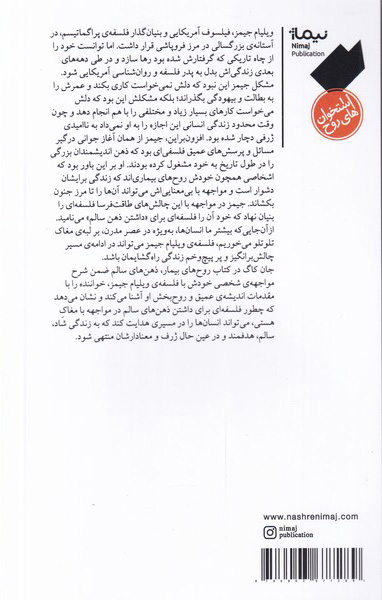 نیماژ
Nimaj
Publication
استخوان
های روح
ویلیام جیمز، فیلسوف آمریکایی و بنیان‌گذار فلسفه‌ی پراگماتیسم، در
آستانه‌ی بزرگسالی در مرز فروپاشی قرار داشت. اما توانست خود را
از چاه تاریکی که گرفتارش شده بود رها سازد و در طی دهه‌های
بعدی زندگی‌اش بدل به پدر فلسفه و روان‌شناسی آمریکایی شود.
مشکل جیمز این نبود که دلش نمی‌خواست کاری بکند و عمرش را
به بطالت و بیهودگی بگذراند؛ بلکه مشکلش این بود که دلش
می‌خواست کارهای بسیار زیاد و مختلفی را با هم انجام دهد و چون
وقت محدود زندگی انسانی این اجازه را به او نمی‌داد به ناامیدی
ژرفی دچار شده بود. افزون‌براین، جیمز از همان آغاز جوانی درگیر
مسائل و پرسش‌های عمیق فلسفی‌ای بود که ذهن اندیشمندان بزرگی
را در طول تاریخ به خود مشغول کرده بودند. او بر این باور بود که
اشخاصی همچون خودش روح‌های بیماری‌اند که زندگی برایشان
دشوار است و مواجهه با بی‌معنایی‌اش می‌تواند آن‌ها را تا مرز جنون
بکشاند. جیمز در مواجهه با این چالش‌های طاقت‌فرسا فلسفه‌ای را
بنیان نهاد که خود آن را فلسفه‌ای برای «داشتن ذهن سالم» می‌نامید.
ازآن‌جایی‌که بیشتر ما انسان‌ها، به‌ویژه در عصر مدرن، بر لبه‌ی مغاک
تلوتلو می‌خوریم، فلسفه‌ی ویلیام جیمز می‌تواند در ادامه‌ی مسیر
چالش‌برانگیز و پر پیچ‌وخم زندگی راه‌گشایمان باشد.
جان کاگ در کتاب روح‌های بیمار، ذهن‌های سالم ضمن شرح
مواجهه‌ی شخصی خودش با فلسفه‌ی ویلیام جیمز، خواننده را با
مقدمات اندیشه‌ی عمیق و روح‌بخش او آشنا می‌کند و نشان می‌دهد
که چطور فلسفه‌ای برای داشتن ذهن‌های سالم در مواجهه با مغاکِ
هستی، می‌تواند انسان‌ها را در مسیری هدایت کند که به زندگی شاد،
سالم، هدفمند و در عین حال ژرف و معنادارشان منتهی شود.
www.nashrenimaj.com
nimaj
publication